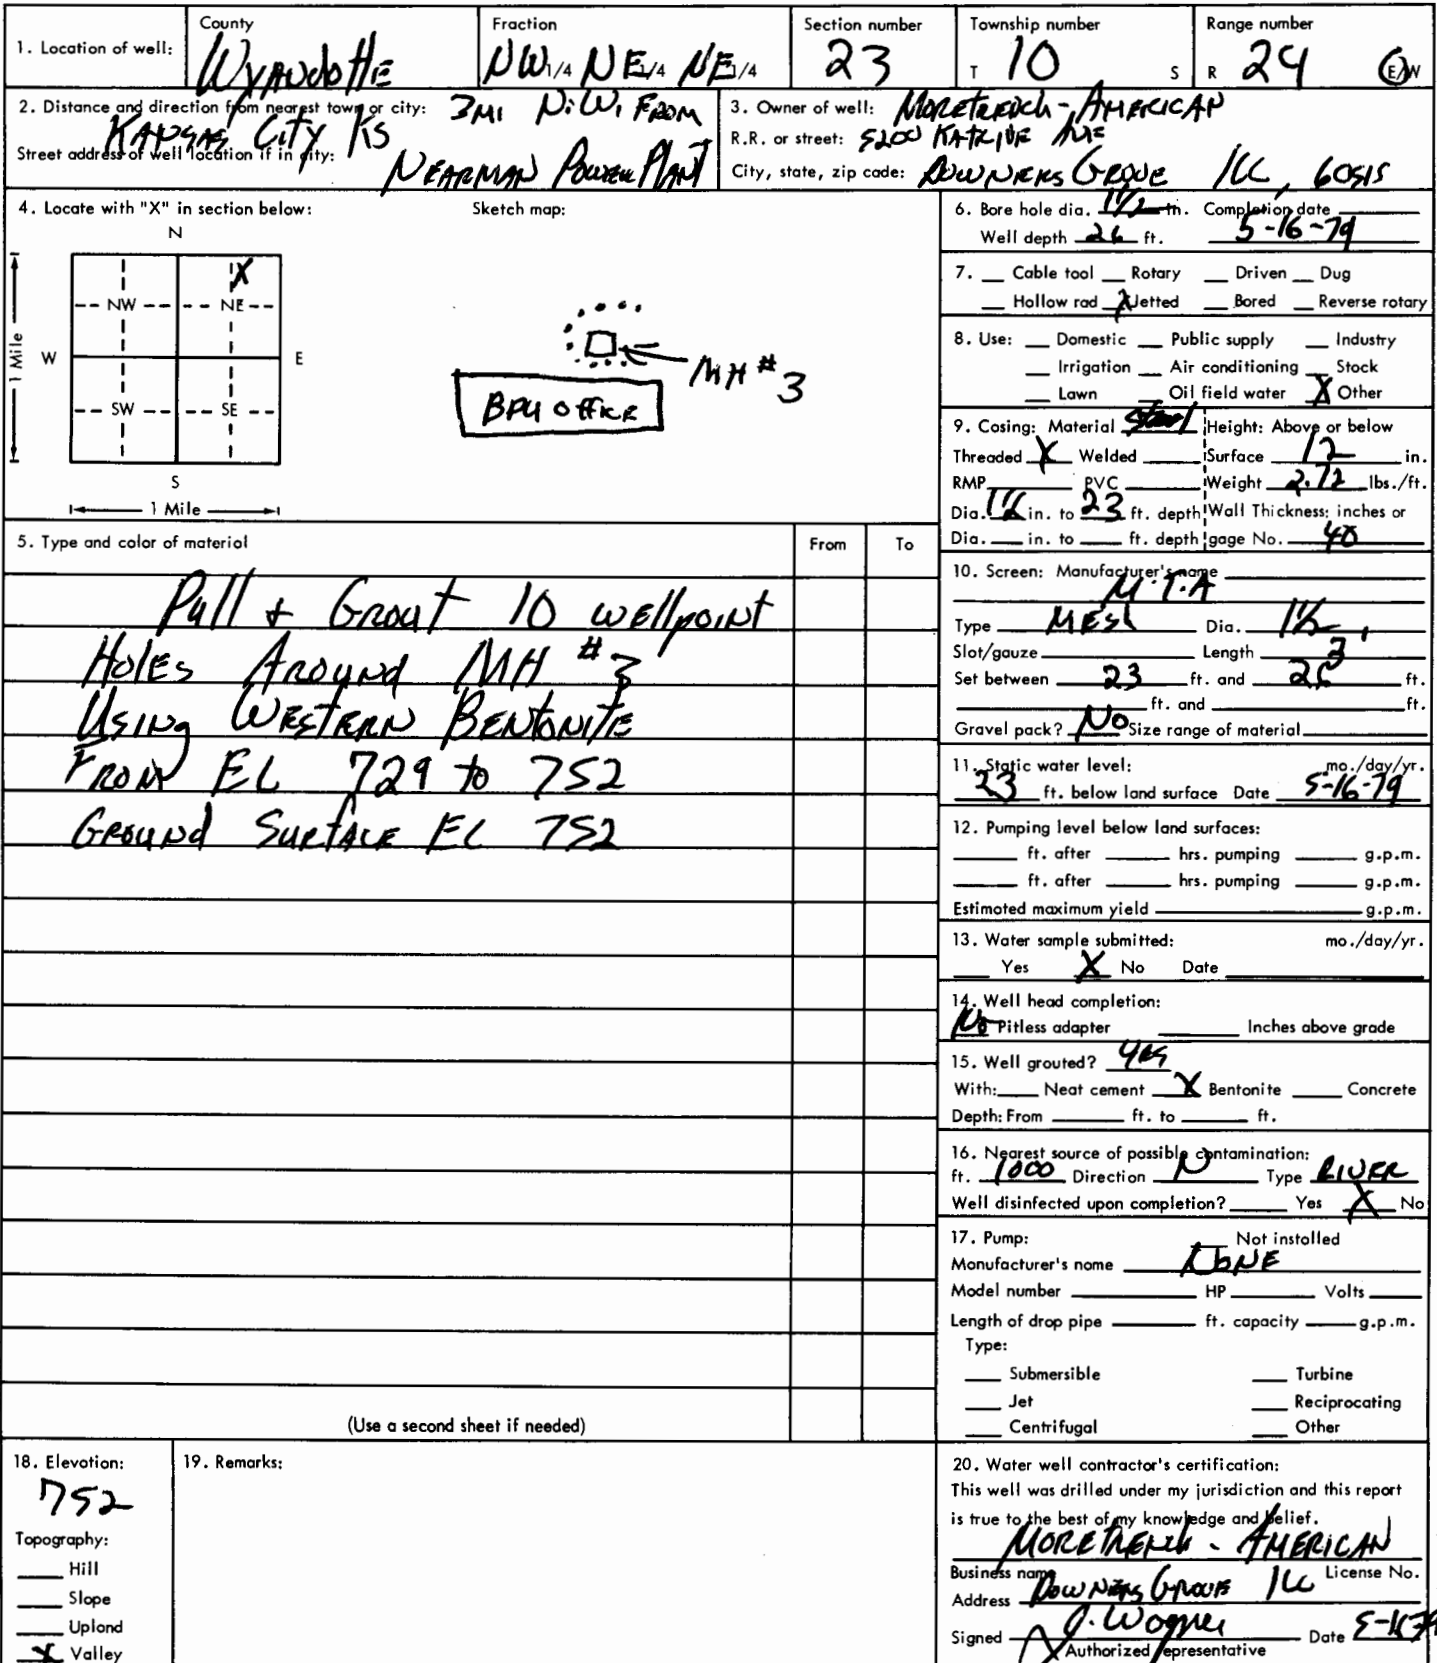 1. Location of well:
County
Wyandotte
Fraction
NW 1/4 NE 1/4 NE 1/4
Section number
23
Township number
T 10 S
Range number
R 24 E/W
2. Distance and direction from nearest town or city: 3MI N.W. FROM
KANSAS City KS
Street address of well location if in city:
NEARMAN POWER PLANT
3. Owner of well: MORETRENCH-AMERICAN
R.R. or street: 5200 KATRINE AVE
City, state, zip code: DOWNERS GROVE ILL, 60515
4. Locate with "X" in section below:
N
X
NW NE
W E
SW SE
S
1 Mile
1 Mile
Sketch map:
MH #3
BPU OFFICE
5. Type and color of material From To
Pull + Grout 10 wellpoint
Holes Around MH #3
Using WESTERN BENTONITE
FROM EL 729 to 752
GROUND SURFACE EL 752
(Use a second sheet if needed)
6. Bore hole dia. 1 1/2 in. Completion date
Well depth 26 ft. 5-16-79
7. Cable tool Rotary Driven Dug
Hollow rod X Jetted Bored Reverse rotary
8. Use: Domestic Public supply Industry
Irrigation Air conditioning Stock
Lawn Oil field water X Other
9. Casing: Material Steel Height: Above or below
Threaded X Welded Surface 12 in.
RMP PVC Weight 2.72 lbs./ft.
Dia. 1 1/2 in. to 23 ft. depth Wall Thickness: inches or
Dia. in. to ft. depth gage No. 40
10. Screen: Manufacturer's name
M.T.A
Type MESH Dia. 1 1/2
Slot/gauze Length 3'
Set between 23 ft. and 26 ft.
ft. and ft.
Gravel pack? No Size range of material
11. Static water level: mo./day/yr.
23 ft. below land surface Date 5-16-79
12. Pumping level below land surfaces:
ft. after hrs. pumping g.p.m.
ft. after hrs. pumping g.p.m.
Estimated maximum yield g.p.m.
13. Water sample submitted: mo./day/yr.
Yes X No Date
14. Well head completion:
No Pitless adapter Inches above grade
15. Well grouted? yes
With: Neat cement X Bentonite Concrete
Depth: From ft. to ft.
16. Nearest source of possible contamination:
ft. 1000 Direction N Type RIVER
Well disinfected upon completion? Yes X No
17. Pump: Not installed
Manufacturer's name NONE
Model number HP Volts
Length of drop pipe ft. capacity g.p.m.
Type:
Submersible Turbine
Jet Reciprocating
Centrifugal Other
18. Elevation:
752
Topography:
Hill
Slope
Upland
X Valley
19. Remarks:
20. Water well contractor's certification:
This well was drilled under my jurisdiction and this report
is true to the best of my knowledge and belief.
MORETRENCH - AMERICAN
Business name License No.
Address DOWNERS GROVE ILL
Signed J. Wagner Date 5-16-79
Authorized representative